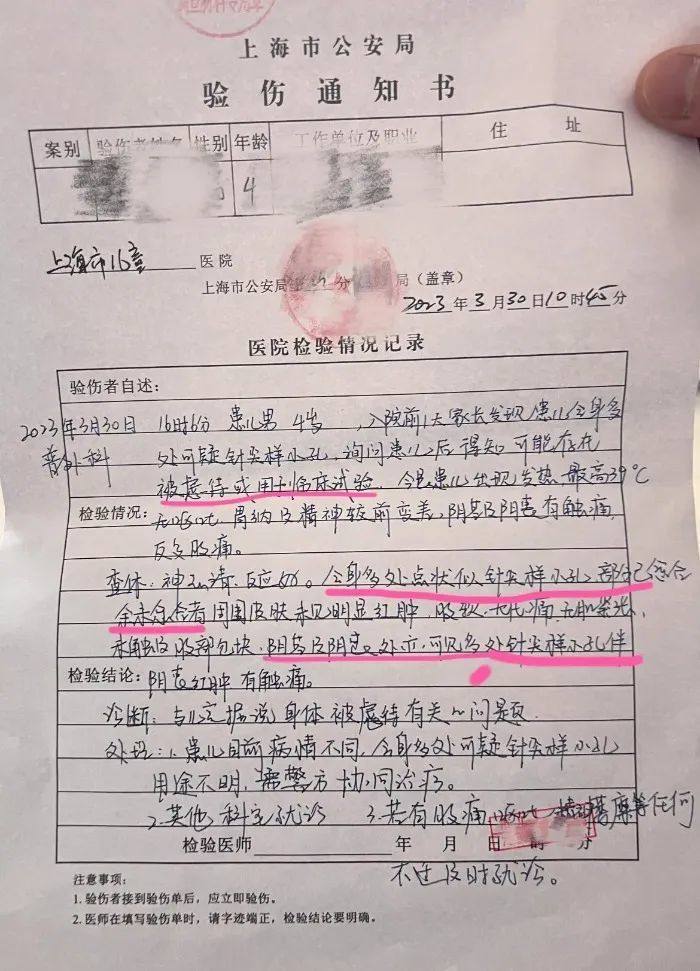 上海市公安局
验伤通知书
案别 验伤者姓名 性别 年龄 工作单位及职业 住址
4
上海市儿童 医院
上海市公安局 分 局（盖章）
2023年3月30日10时45分
医院检验情况记录
验伤者自述：
2023年3月30日 16时6分 患儿男 4岁 ，入院前1天家长发现患儿全身多
普外科 处可疑针尖样小孔，询问患儿后得知可能存在
被虐待或用于临床试验，今患儿出现发热 最高39℃
检验情况：无呕吐，胃纳及精神较前变差，阴茎及阴囊有触痛，
反复腹痛。
查体：神志清，反应好。全身多处点状似针尖样小孔 部分已愈合
余未愈合者 周围皮肤未见明显红肿，腹软
未触及腹部包块，阴茎及阴囊处亦可见多处针尖样小孔伴
检验结论：阴囊红肿 有触痛。
诊断：与儿 据说 身体被虐待有关 问题
处理：1、患儿目前病情不同，全身多处可疑针尖样小孔
用途不明，需警方协同治疗。
2.其他科室就诊 3.若有腹痛 呕吐 等任何
检验医师 年 月 日 时 分
不适及时就诊。
注意事项：
1.验伤者接到验伤单后，应立即验伤。
2.医师在填写验伤单时，请字迹端正，检验结论要明确。